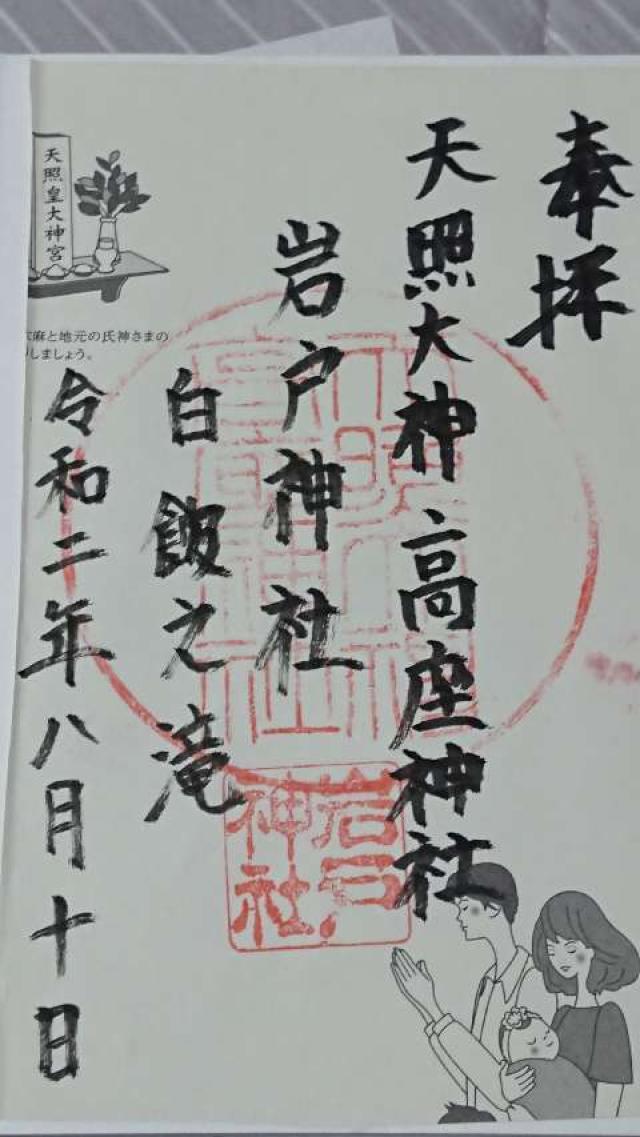 奉拝
天照大神高座神社
岩戸神社
白飯之滝
令和二年八月十日
天照皇大神宮
麻と地元の氏神さまの
しましょう。
岩戸
神社